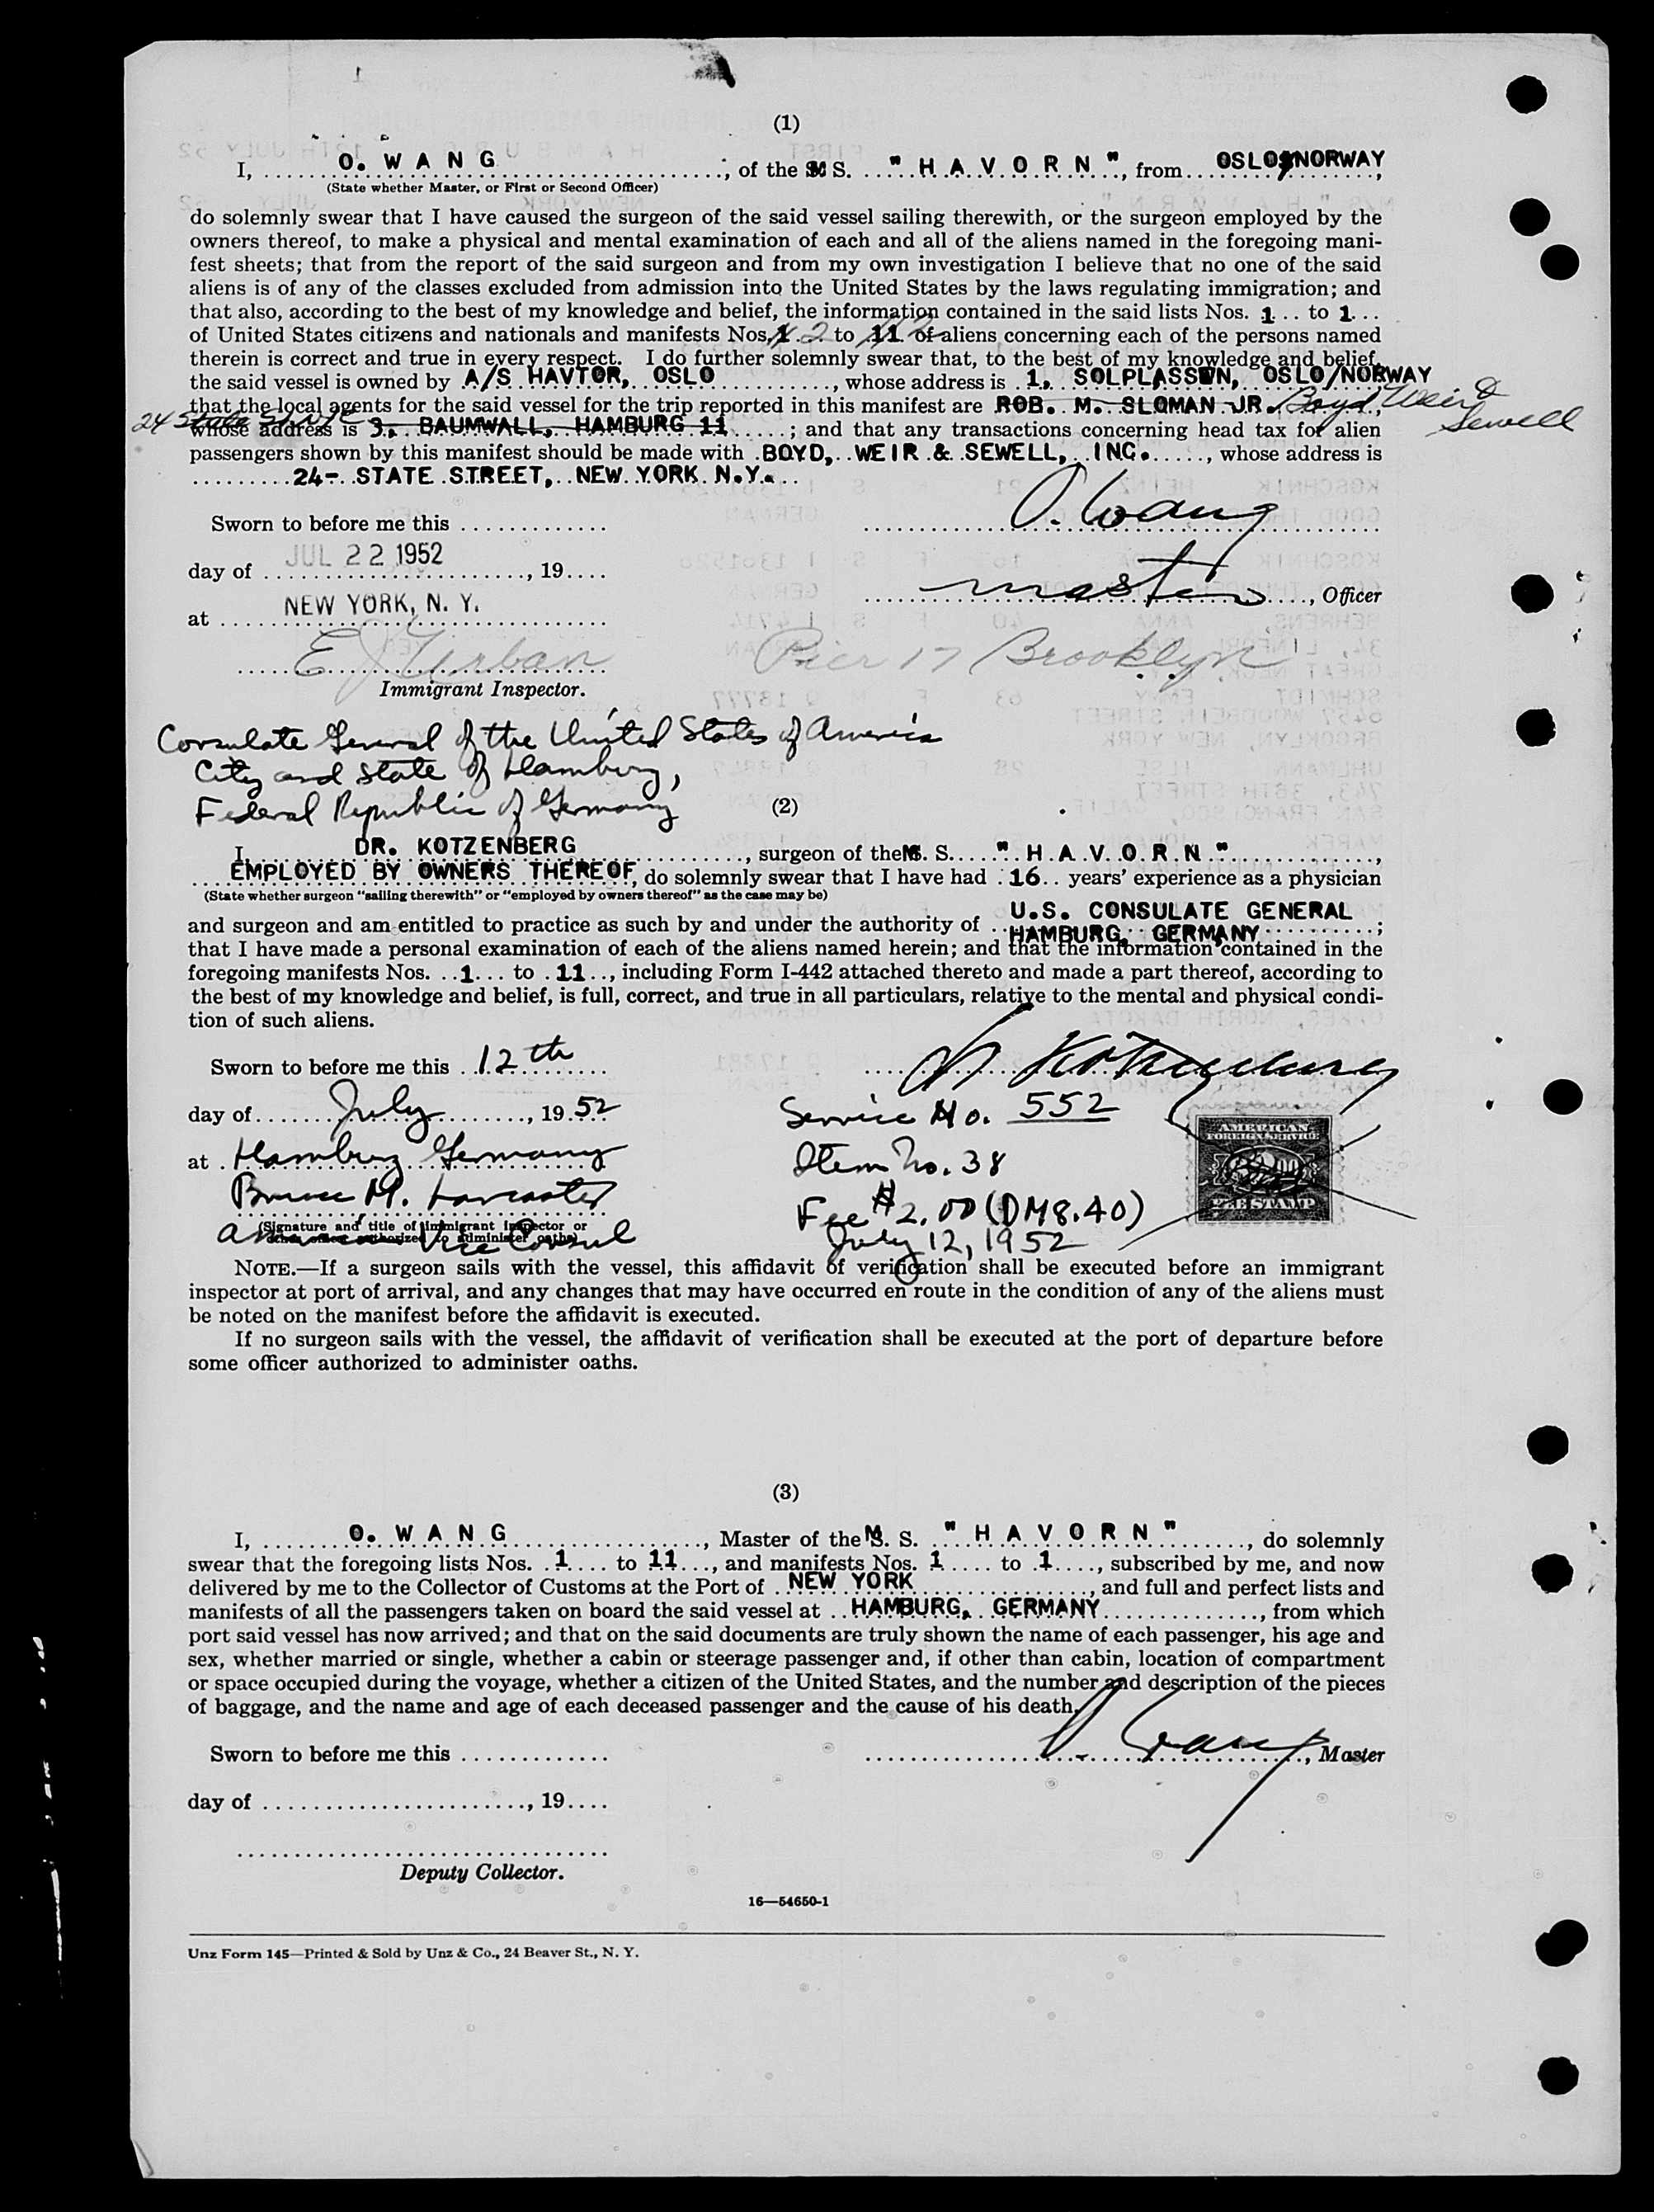 (1)
I, O. WANG, of the M S. "HAVORN", from OSLO/NORWAY,
(State whether Master, or First or Second Officer)
do solemnly swear that I have caused the surgeon of the said vessel sailing therewith, or the surgeon employed by the
owners thereof, to make a physical and mental examination of each and all of the aliens named in the foregoing mani-
fest sheets; that from the report of the said surgeon and from my own investigation I believe that no one of the said
aliens is of any of the classes excluded from admission into the United States by the laws regulating immigration; and
that also, according to the best of my knowledge and belief, the information contained in the said lists Nos. 1 to 1
of United States citizens and nationals and manifests Nos. 1 2 to 11 of aliens concerning each of the persons named
therein is correct and true in every respect. I do further solemnly swear that, to the best of my knowledge and belief,
the said vessel is owned by A/S HAVTOR, OSLO, whose address is 1, SOLPLASSEN, OSLO/NORWAY
that the local agents for the said vessel for the trip reported in this manifest are ROB. M. SLOMAN JR. Boyd, Weir &
Sewell
24 State St
whose address is 3, BAUMWALL, HAMBURG 11; and that any transactions concerning head tax for alien
passengers shown by this manifest should be made with BOYD, WEIR & SEWELL, INC., whose address is
24- STATE STREET, NEW YORK N.Y.
Sworn to before me this
O. Wang
day of JUL 22 1952, 19
master, Officer
at NEW YORK, N. Y.
E J Urban
Pier 17 Brooklyn
Immigrant Inspector.
Consulate General of the United States of America
City and State of Hamburg,
Federal Republic of Germany
(2)
I, DR. KOTZENBERG, surgeon of the M. S. "HAVORN",
EMPLOYED BY OWNERS THEREOF, do solemnly swear that I have had 16 years' experience as a physician
(State whether surgeon "sailing therewith" or "employed by owners thereof" as the case may be)
and surgeon and am entitled to practice as such by and under the authority of U.S. CONSULATE GENERAL
HAMBURG, GERMANY;
that I have made a personal examination of each of the aliens named herein; and that the information contained in the
foregoing manifests Nos. 1 to 11, including Form I-442 attached thereto and made a part thereof, according to
the best of my knowledge and belief, is full, correct, and true in all particulars, relative to the mental and physical condi-
tion of such aliens.
Sworn to before me this 12th
Kotzenberg
day of July, 1952
Service No. 552
at Hamburg Germany
Item No. 38
AMERICAN
FOREIGN SERVICE
FEE STAMP
Bruce M. Lancaster
Fee $2.00 (DM8.40)
(Signature and title of immigrant inspector or
other officer authorized to administer oaths)
American Vice Consul
July 12, 1952
NOTE.—If a surgeon sails with the vessel, this affidavit of verification shall be executed before an immigrant
inspector at port of arrival, and any changes that may have occurred en route in the condition of any of the aliens must
be noted on the manifest before the affidavit is executed.
If no surgeon sails with the vessel, the affidavit of verification shall be executed at the port of departure before
some officer authorized to administer oaths.
(3)
I, O. WANG, Master of the M. S. "HAVORN", do solemnly
swear that the foregoing lists Nos. 1 to 11, and manifests Nos. 1 to 1, subscribed by me, and now
delivered by me to the Collector of Customs at the Port of NEW YORK, and full and perfect lists and
manifests of all the passengers taken on board the said vessel at HAMBURG, GERMANY, from which
port said vessel has now arrived; and that on the said documents are truly shown the name of each passenger, his age and
sex, whether married or single, whether a cabin or steerage passenger and, if other than cabin, location of compartment
or space occupied during the voyage, whether a citizen of the United States, and the number and description of the pieces
of baggage, and the name and age of each deceased passenger and the cause of his death.
Sworn to before me this
O. Wang, Master
day of, 19
Deputy Collector.
16—54650-1
Unz Form 145—Printed & Sold by Unz & Co., 24 Beaver St., N. Y.